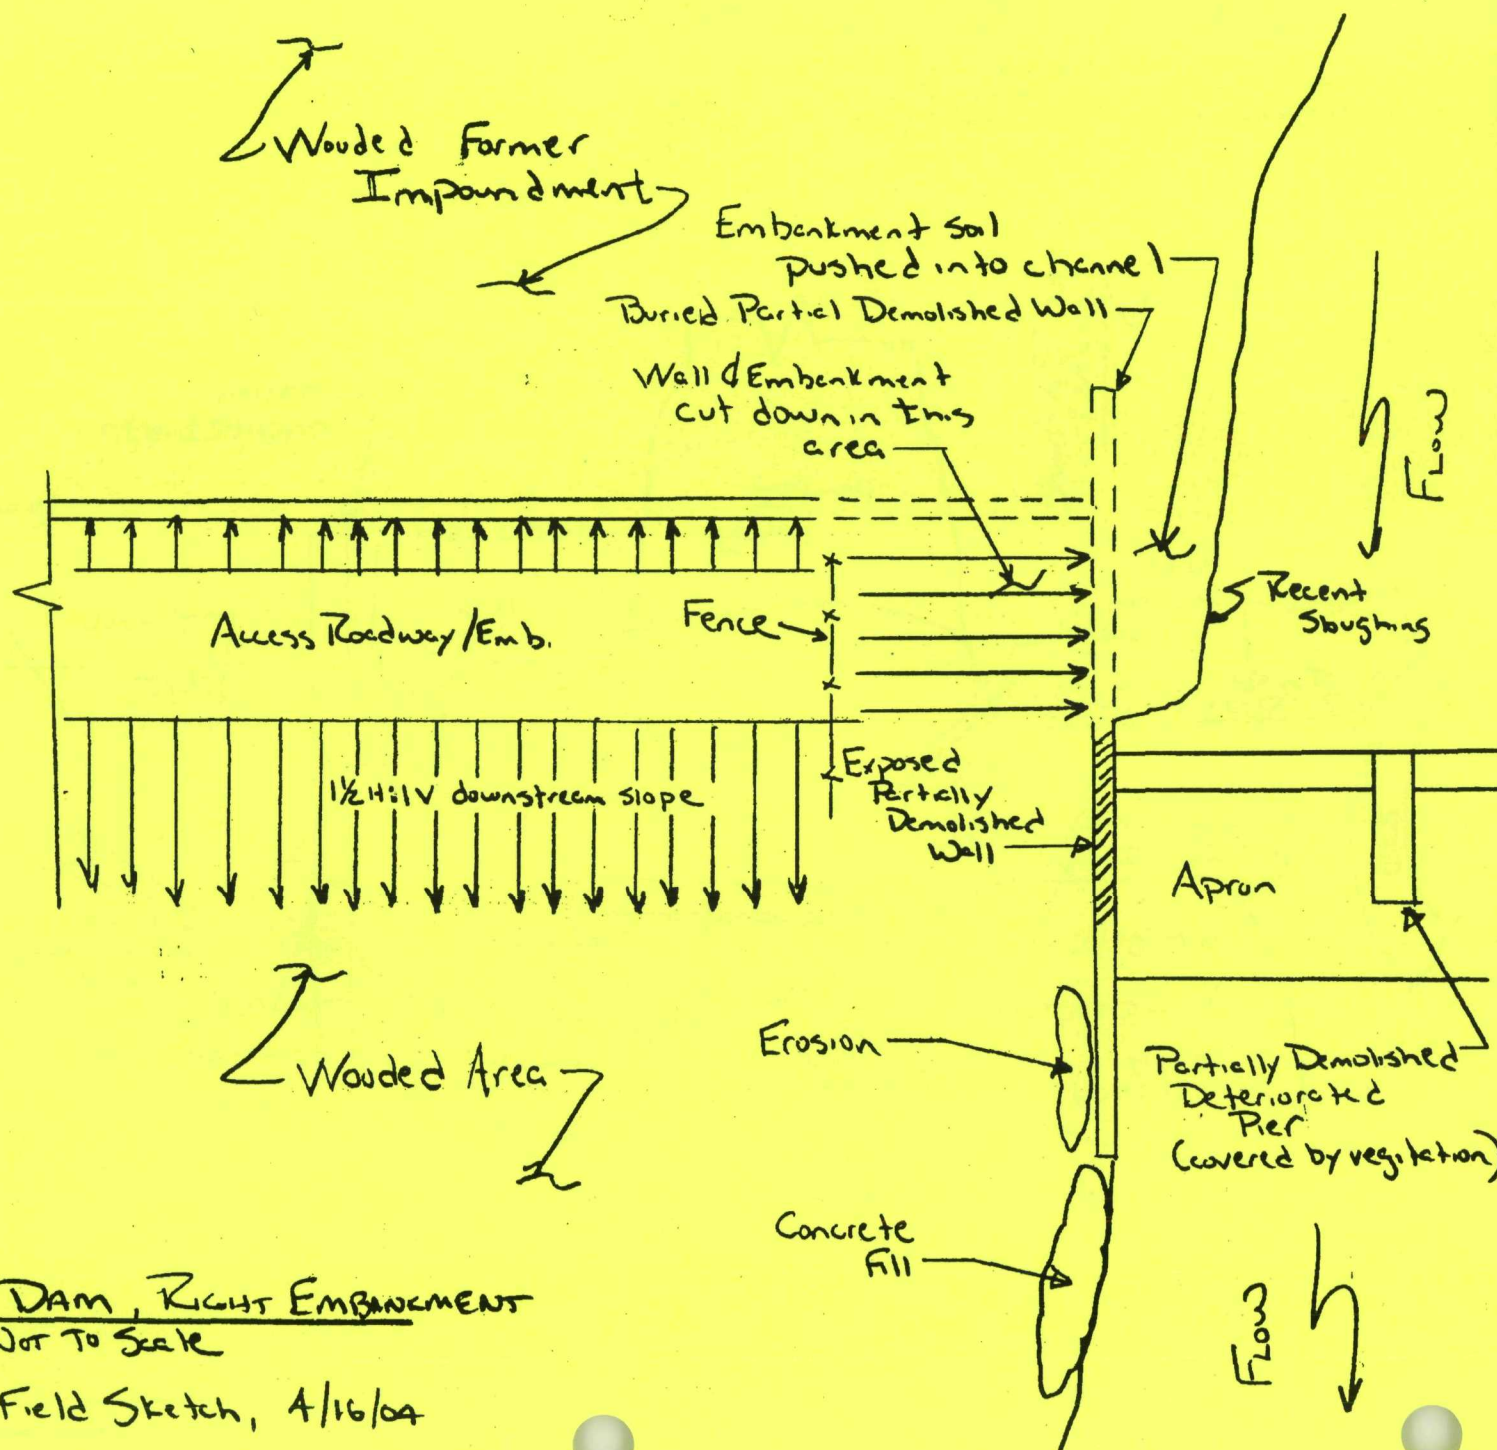 Wooded Former
Impoundment
Embankment Soil
pushed into channel
Buried Partial Demolished Wall
Wall & Embankment
cut down in this
area
Flow
Access Roadway/Emb.
Fence
Recent
Sloughing
1½H:1V downstream slope
Exposed
Partially
Demolished
Wall
Apron
Erosion
Wooded Area
Partially Demolished
Deteriorated
Pier
(covered by vegitation)
Concrete
Fill
Flow
DAM, RIGHT EMBANKMENT
Not To Scale
Field Sketch, 4/16/04